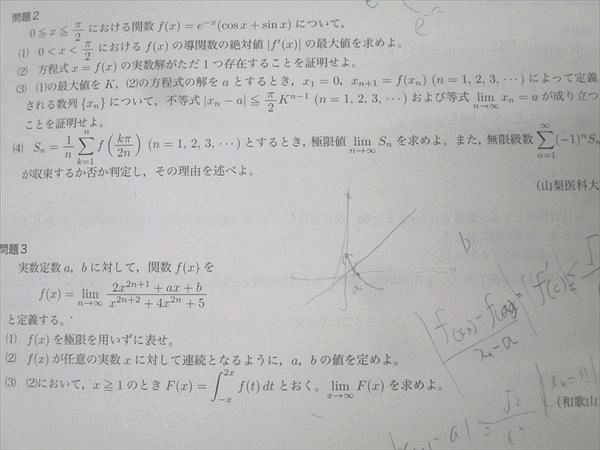 e^{-2}
問題2
0≦x≦π/2 における関数 f(x)=e^{-x}(cos x+sin x) について，
(1) 0<x<π/2 における f(x) の導関数の絶対値 |f'(x)| の最大値を求めよ。
(2) 方程式 x=f(x) の実数解がただ1つ存在することを証明せよ。
(3) (1)の最大値を K，(2)の方程式の解を a とするとき，x_1=0，x_{n+1}=f(x_n) (n=1, 2, 3, …) によって定義
される数列 {x_n} について，不等式 |x_n-a|≦π/2 K^{n-1} (n=1, 2, 3, …) および等式 lim_{n→∞} x_n=a が成り立つ
ことを証明せよ。
(4) S_n=1/n Σ_{k=1}^{n} f(kπ/2n) (n=1, 2, 3, …) とするとき，極限値 lim_{n→∞} S_n を求めよ。また，無限級数 Σ_{n=1}^{∞}(-1)^n S_n
が収束するか否か判定し，その理由を述べよ。
(山梨医科大
問題3
実数定数 a，b に対して，関数 f(x) を
f(x)=lim_{n→∞} (2x^{2n+1}+ax+b)/(x^{2n+2}+4x^{2n}+5)
と定義する。
(1) f(x) を極限を用いずに表せ。
(2) f(x) が任意の実数 x に対して連続となるように，a，b の値を定めよ。
(3) (2)において，x≧1 のとき F(x)=∫_{-x}^{2x} f(t) dt とおく。lim_{x→∞} F(x) を求めよ。
(和歌山
a
b